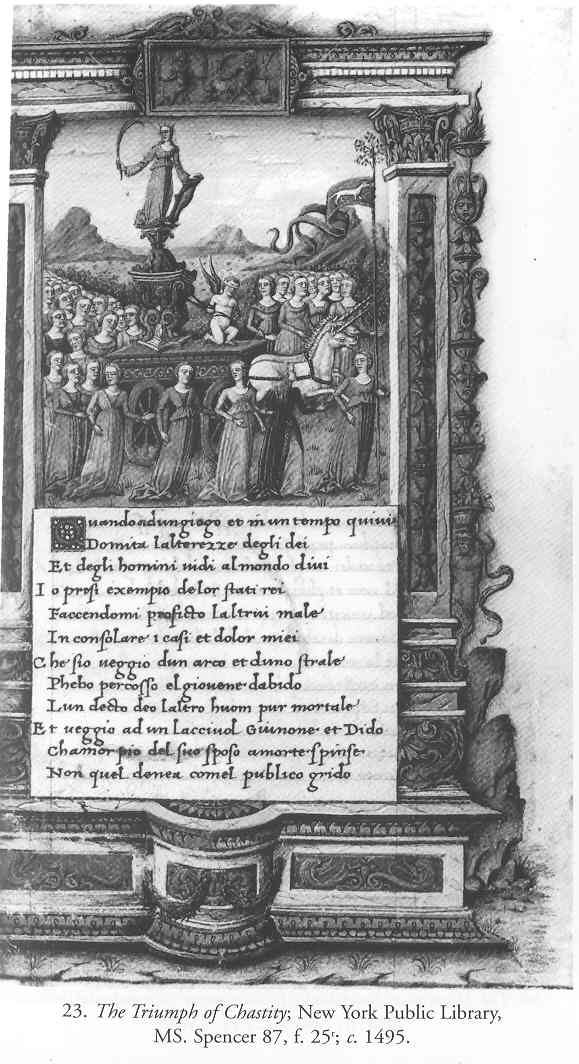 Quando ad un giogo et in un tempo quivi
Domita lalterezze degli dei
Et degli homini vidi al mondo divi
I o presi exempio de lor stati rei
Faccendomi profitto laltrui male
In consolare i casi et dolor miei
Che sio veggio dun arco et duno strale
Phebo percosso el giovene dabido
Lun decto deo laltro huom pur mortale
Et veggio ad un lacciuol Giunone et Dido
Chamor pio del suo sposo a morte spinse
Non quel denea comel publico grido
23. The Triumph of Chastity; New York Public Library,
MS. Spencer 87, f. 25r; c. 1495.